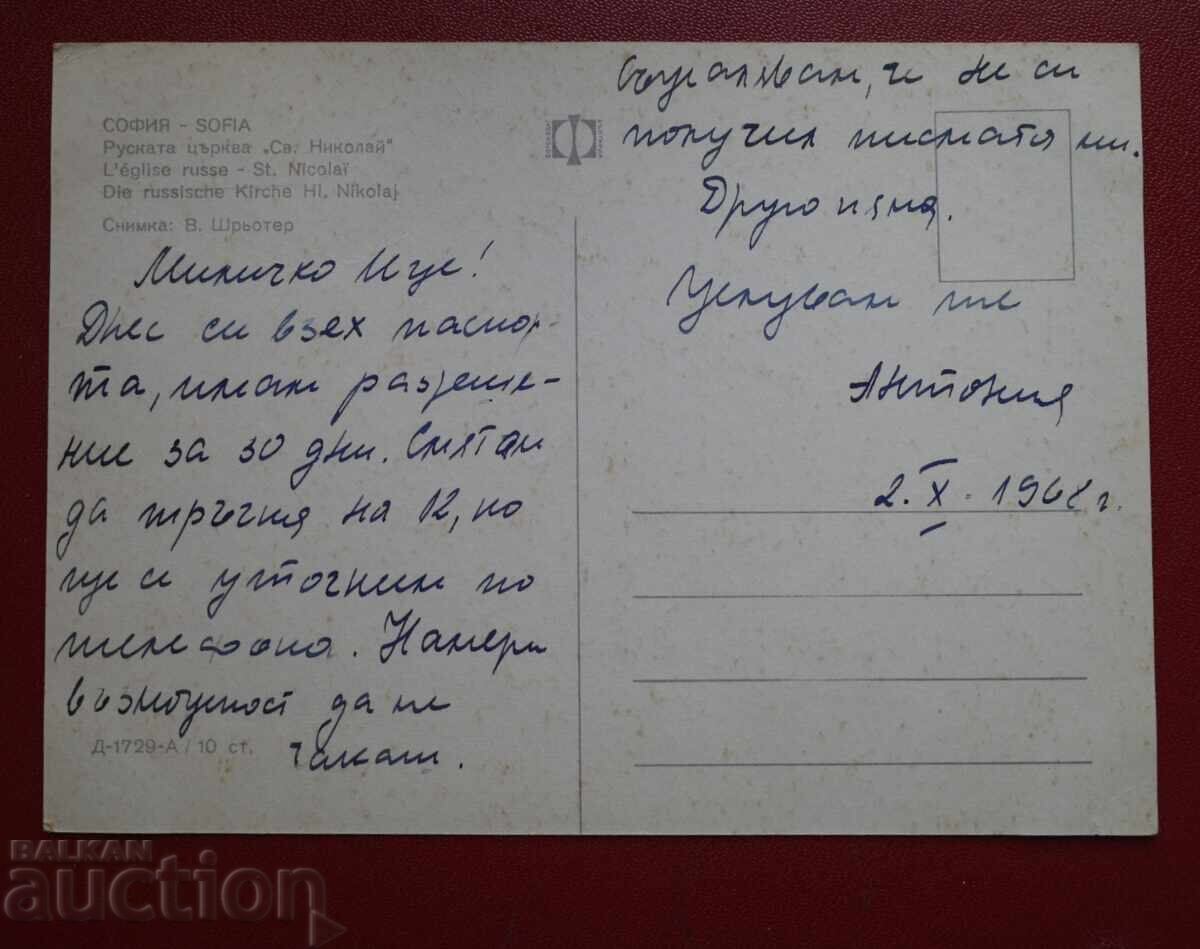 СОФИЯ - SOFIA
Руската църква „Св. Николай"
L'église russe - St. Nicolaï
Die russische Kirche Hl. Nikolaj
Снимка: В. Шрьотер
Миличко Ице!
Днес си взех паспор-
та, имам разреше-
ние за 30 дни. Смятам
да тръгна на 12, но
ще се уточним по
телефона. Намери
възможност да ме
чакаш.
Д-1729-А / 10 ст.
Съжалявам, че не си
получил писмата ми.
Друго няма.
Целувам те
Антония
2. X. 1968 г.
BALKAN
auction